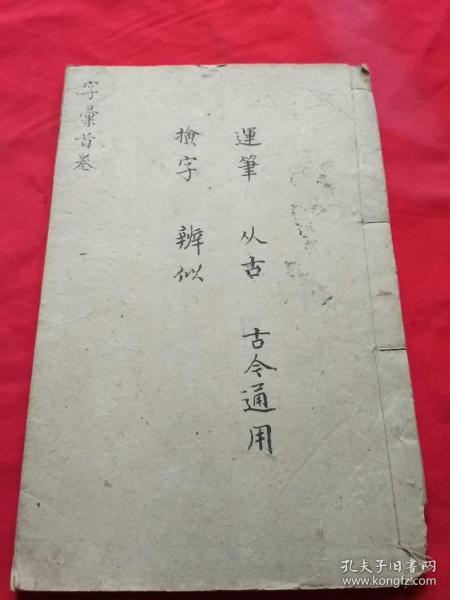 運筆 从古 古今通用
檢字 辨似
字彙首卷
孔夫子旧书网
www.kongfz.com